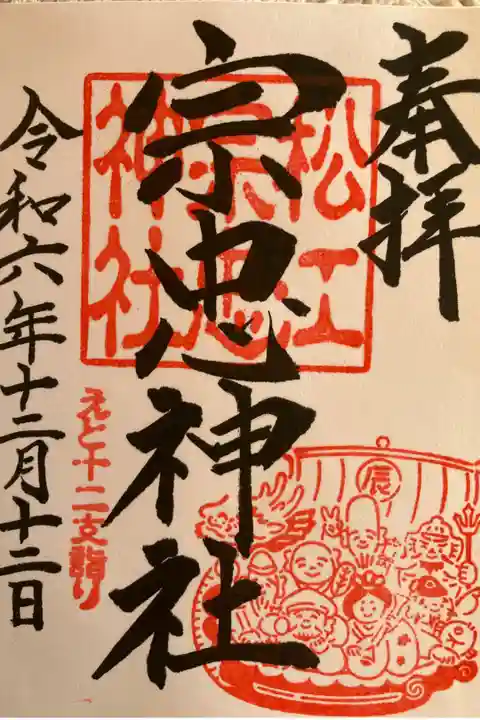 奉拝
松江
宗忠
神社
宗忠神社
えと十二支詣り
辰
令和六年十二月十二日